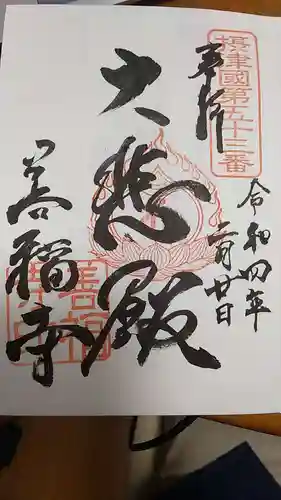 奉拝
摂津國第五十三番
令和四年
二月廿日
大悲殿
善福寺